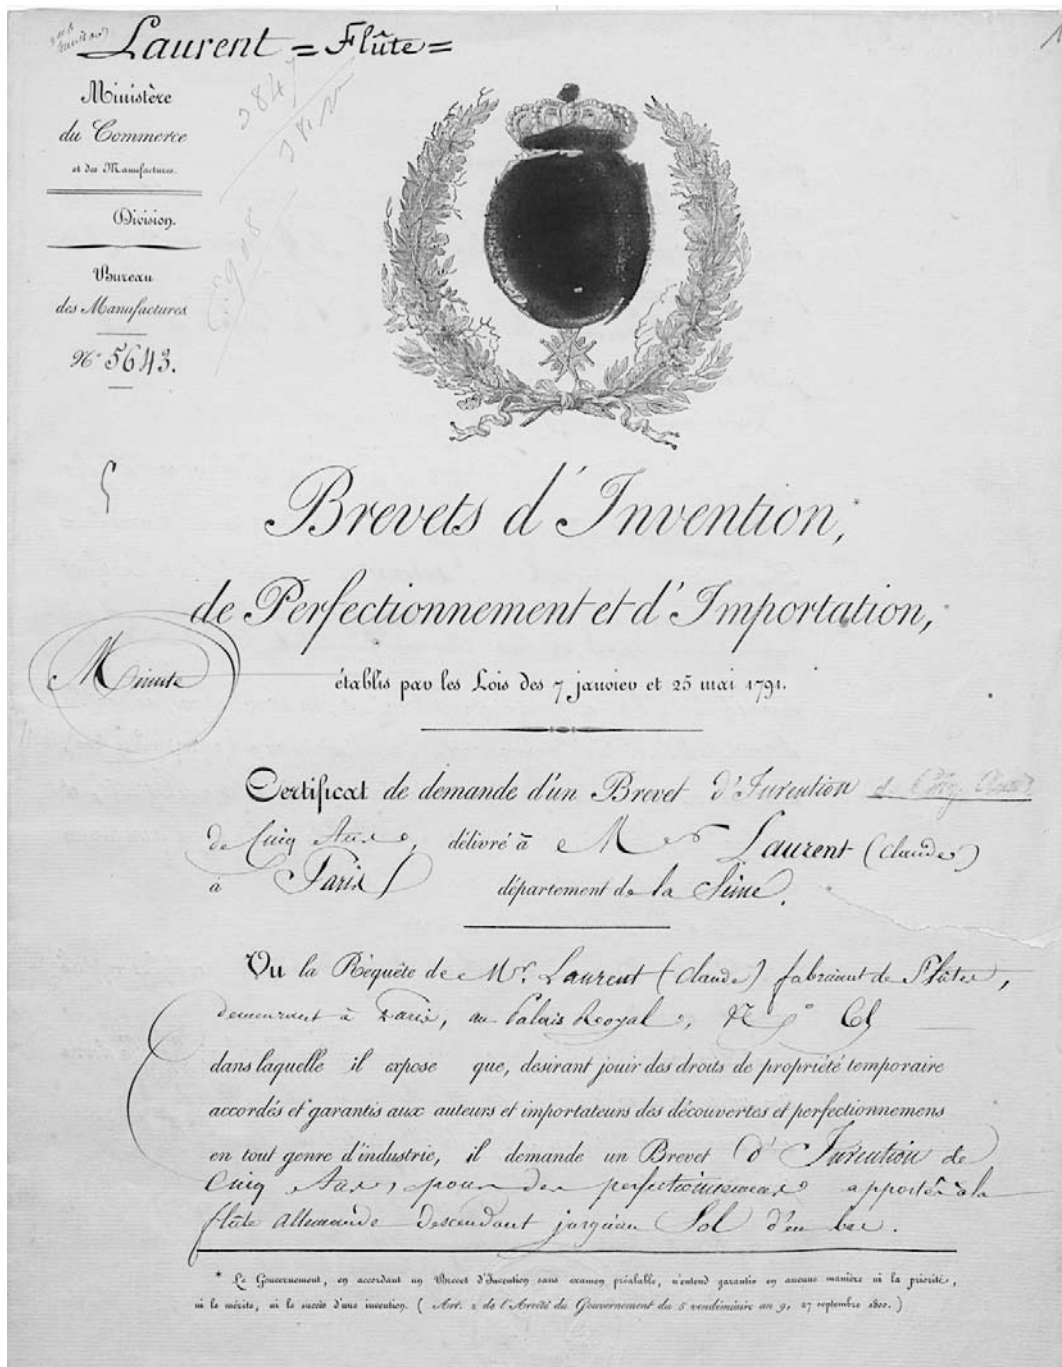 Laurent = Flûte =
1
Ministère
du Commerce
et des Manufactures.
Division.
Bureau
des Manufactures
N° 5643.
Brevets d'Invention,*
de Perfectionnement et d'Importation,
Minute
établis par les Lois des 7 janvier et 25 mai 1791.
Certificat de demande d'un Brevet d'Invention
de Cinq Ans, délivré à Mr Laurent (Claude)
à Paris département de la Seine.
Vu la Réquête de Mr. Laurent (Claude) fabricant de Flûtes,
demeurant à Paris, au Palais Royal, N°
dans laquelle il expose que, desirant jouir des droits de propriété temporaire
accordés et garantis aux auteurs et importateurs des découvertes et perfectionnemens
en tout genre d'industrie, il demande un Brevet d'Invention de
Cinq Ans, pour des perfectionnemens apportés à la
flûte allemande descendant jusqu'au Sol d'en bas.
* Le Gouvernement, en accordant un Brevet d'Invention sans examen préalable, n'entend garantir en aucune manière ni la priorité,
ni le mérite, ni le succès d'une invention. (Art. 2 de l'Arrêté du Gouvernement du 5 vendémiaire an 9, 27 septembre 1800.)